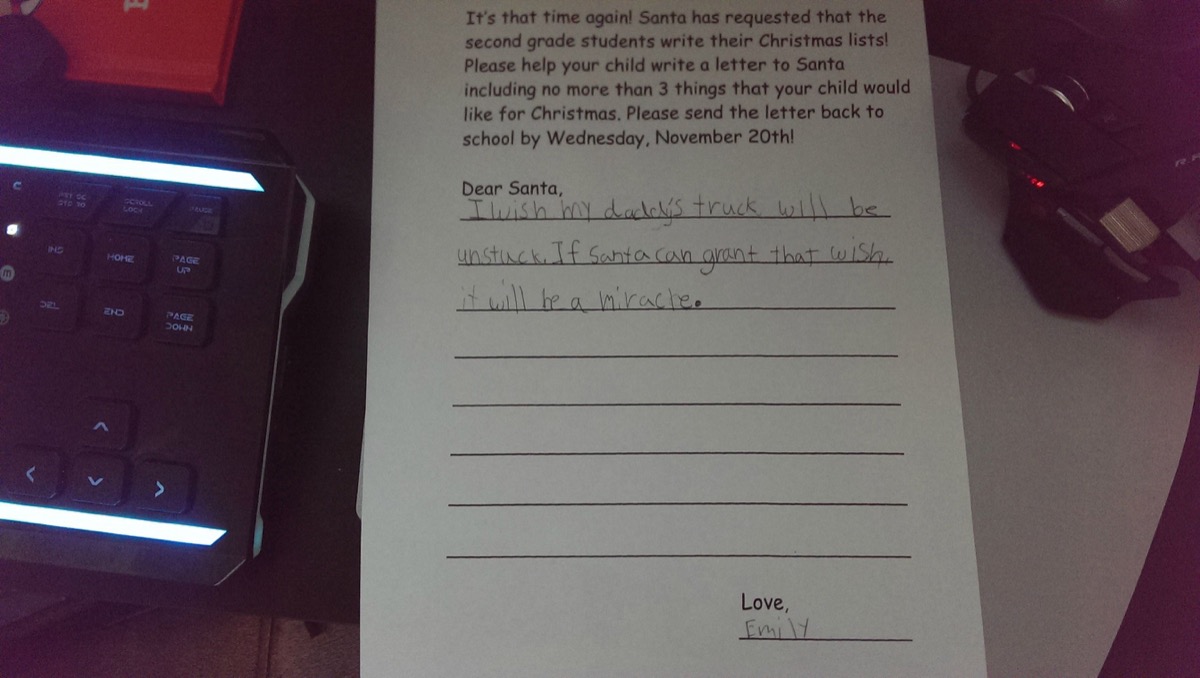 It's that time again! Santa has requested that the
second grade students write their Christmas lists!
Please help your child write a letter to Santa
including no more than 3 things that your child would
like for Christmas. Please send the letter back to
school by Wednesday, November 20th!
Dear Santa,
I wish my daddy's truck will be
unstuck. If Santa can grant that wish,
it will be a miracle.
Love,
Emily
C
SCROLL
LOCK
PAUSE
INS
HOME
PAGE
UP
DEL
END
PAGE
DOWN